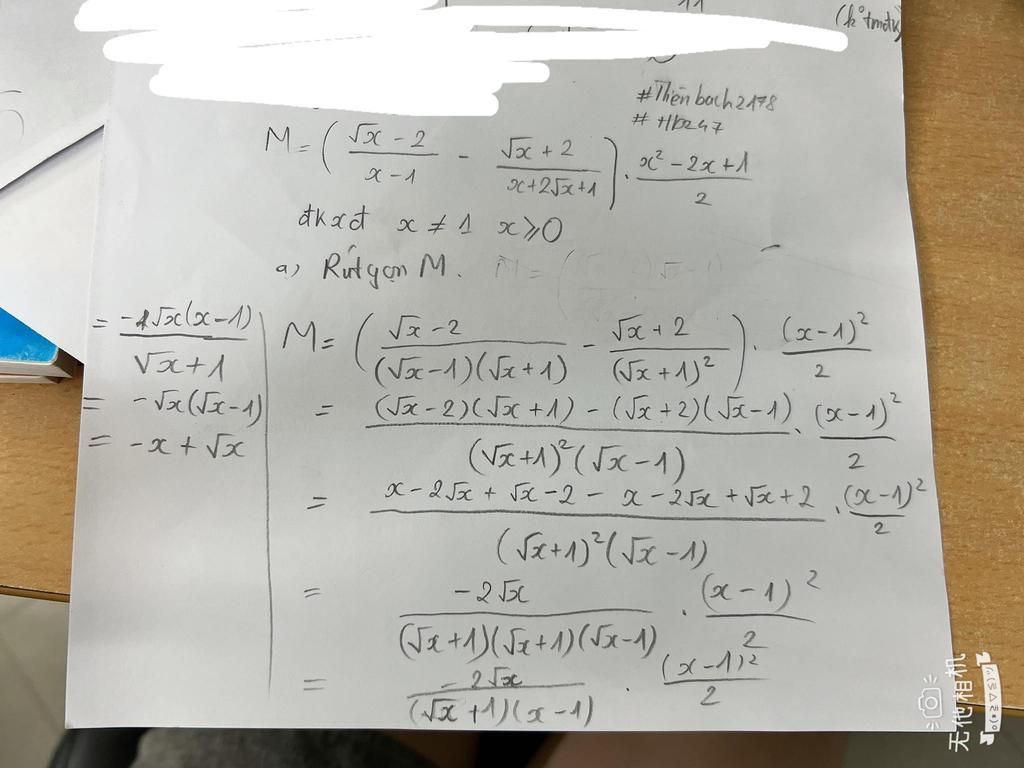 11
(k°tmđk)
#Thiênbach2178
# Hb247
M = ( (√x − 2)/(x − 1) − (√x + 2)/(x + 2√x + 1) ) . (x² − 2x + 1)/2
đkxđ x ≠ 1 x ⩾ 0
a) Rút gọn M.
M = ( (√x − 2)/((√x − 1)(√x + 1)) − (√x + 2)/((√x + 1)²) ) . (x − 1)²/2
= ((√x − 2)(√x + 1) − (√x + 2)(√x − 1))/((√x + 1)²(√x − 1)) . (x − 1)²/2
= (x − 2√x + √x − 2 − x − 2√x + √x + 2)/((√x + 1)²(√x − 1)) . (x − 1)²/2
= (−2√x)/((√x + 1)(√x + 1)(√x − 1)) . (x − 1)²/2
= (−2√x)/((√x + 1)(x − 1)) . (x − 1)²/2
= (−1√x(x − 1))/(√x + 1)
= −√x(√x − 1)
= −x + √x
无他相机